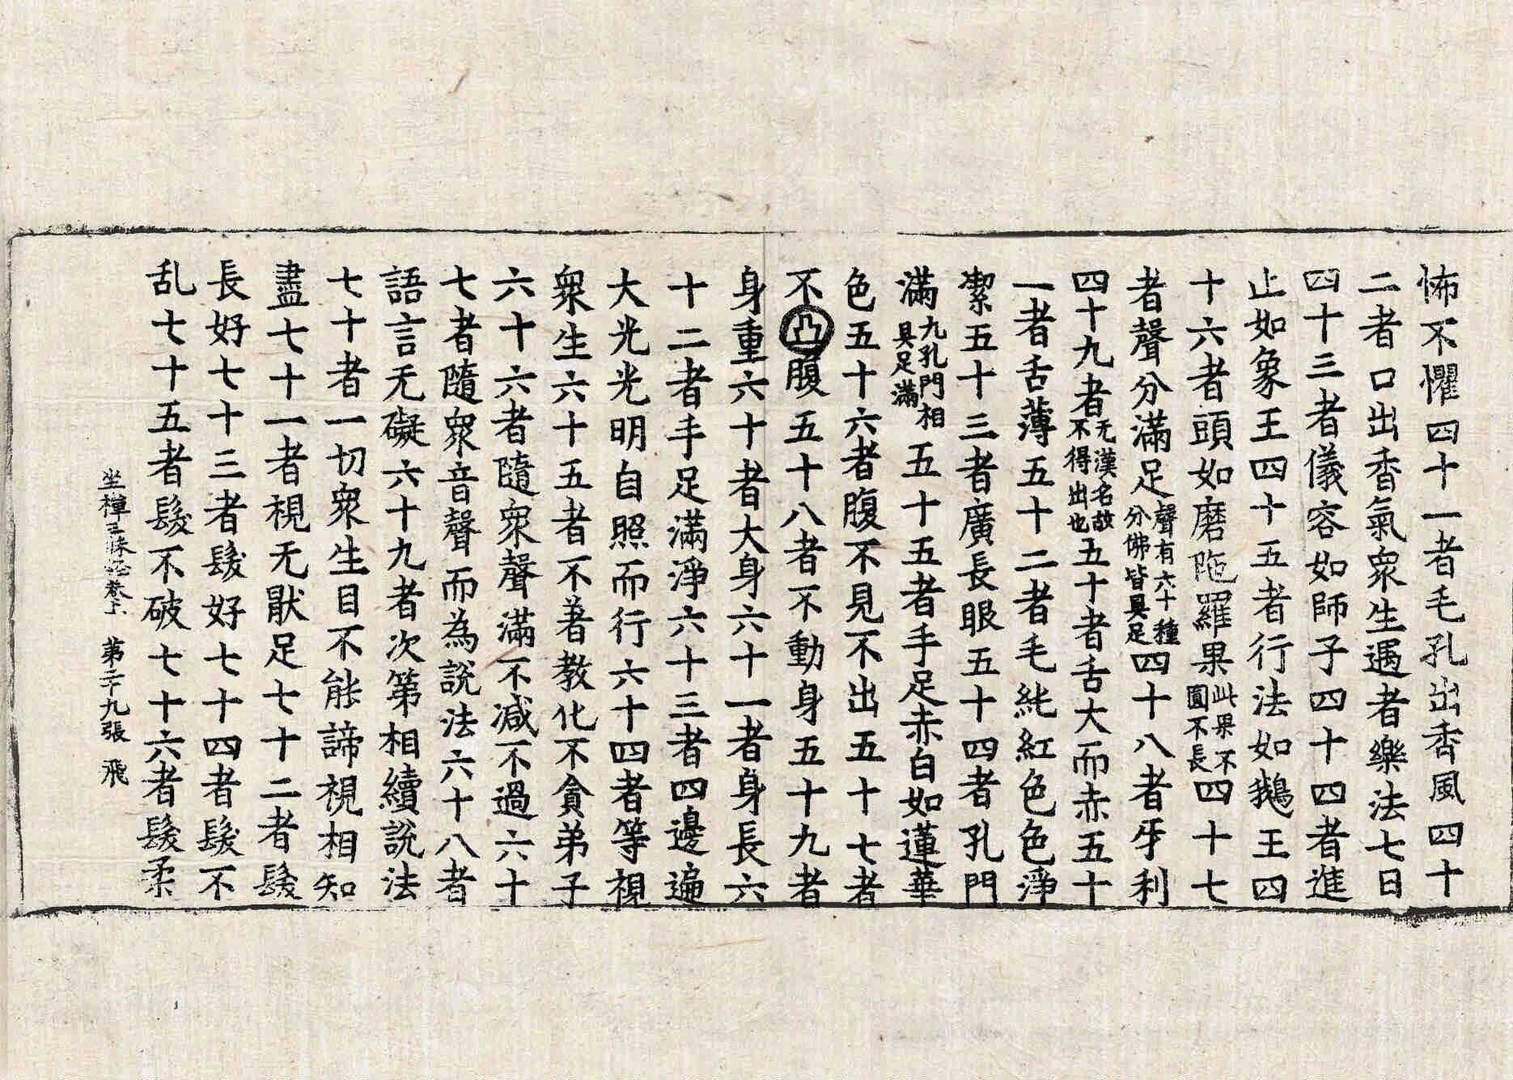 怖不懼四十一者毛孔出香風四十
二者口出香氣衆生遇者樂法七日
四十三者儀容如師子四十四者進
止如象王四十五者行法如鵝王四
十六者頭如磨陁羅果此果不圓不長四十七
者聲分滿足聲有六十種分佛皆具足四十八者牙利
四十九者无漢名故不得出也五十者舌大而赤五十
一者舌薄五十二者毛純紅色色淨
潔五十三者廣長眼五十四者孔門
滿九孔門相具足滿五十五者手足赤白如蓮華
色五十六者腹不見不出五十七者
不凸腹五十八者不動身五十九者
身重六十者大身六十一者身長六
十二者手足滿淨六十三者四邊遍
大光光明自照而行六十四者等視
衆生六十五者不著教化不貪弟子
六十六者隨衆聲滿不减不過六十
七者隨衆音聲而為說法六十八者
語言无礙六十九者次第相續說法
七十者一切衆生目不能諦視相知
盡七十一者視无猒足七十二者髮
長好七十三者髮好七十四者髮不
乱七十五者髮不破七十六者髮柔
坐禪三昧經卷上 第二十九張 飛